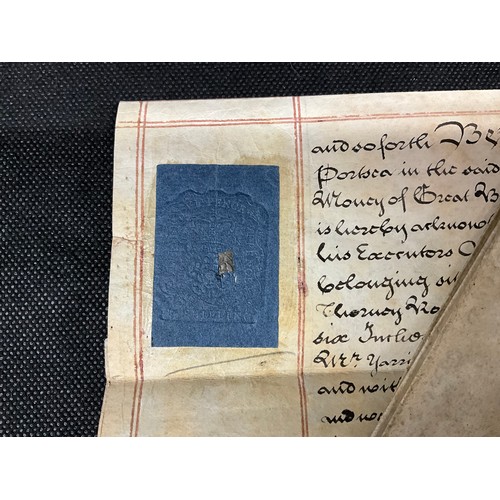 and so forth Be
Portsea in the said
Money of Great B
is hereby acknow
his Executors
belonging si
Thorney Ro
six Inches
Mr. Yarri
and wit
and w